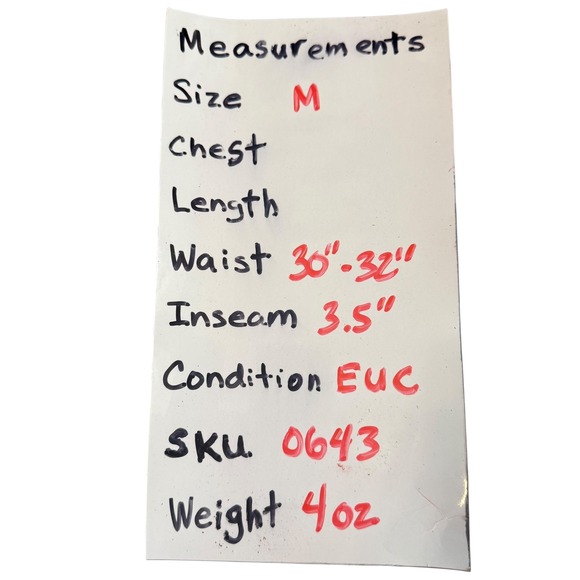 Measurements
Size M
Chest
Length
Waist 30"-32"
Inseam 3.5"
Condition EUC
SKU. 0643
Weight 4oz